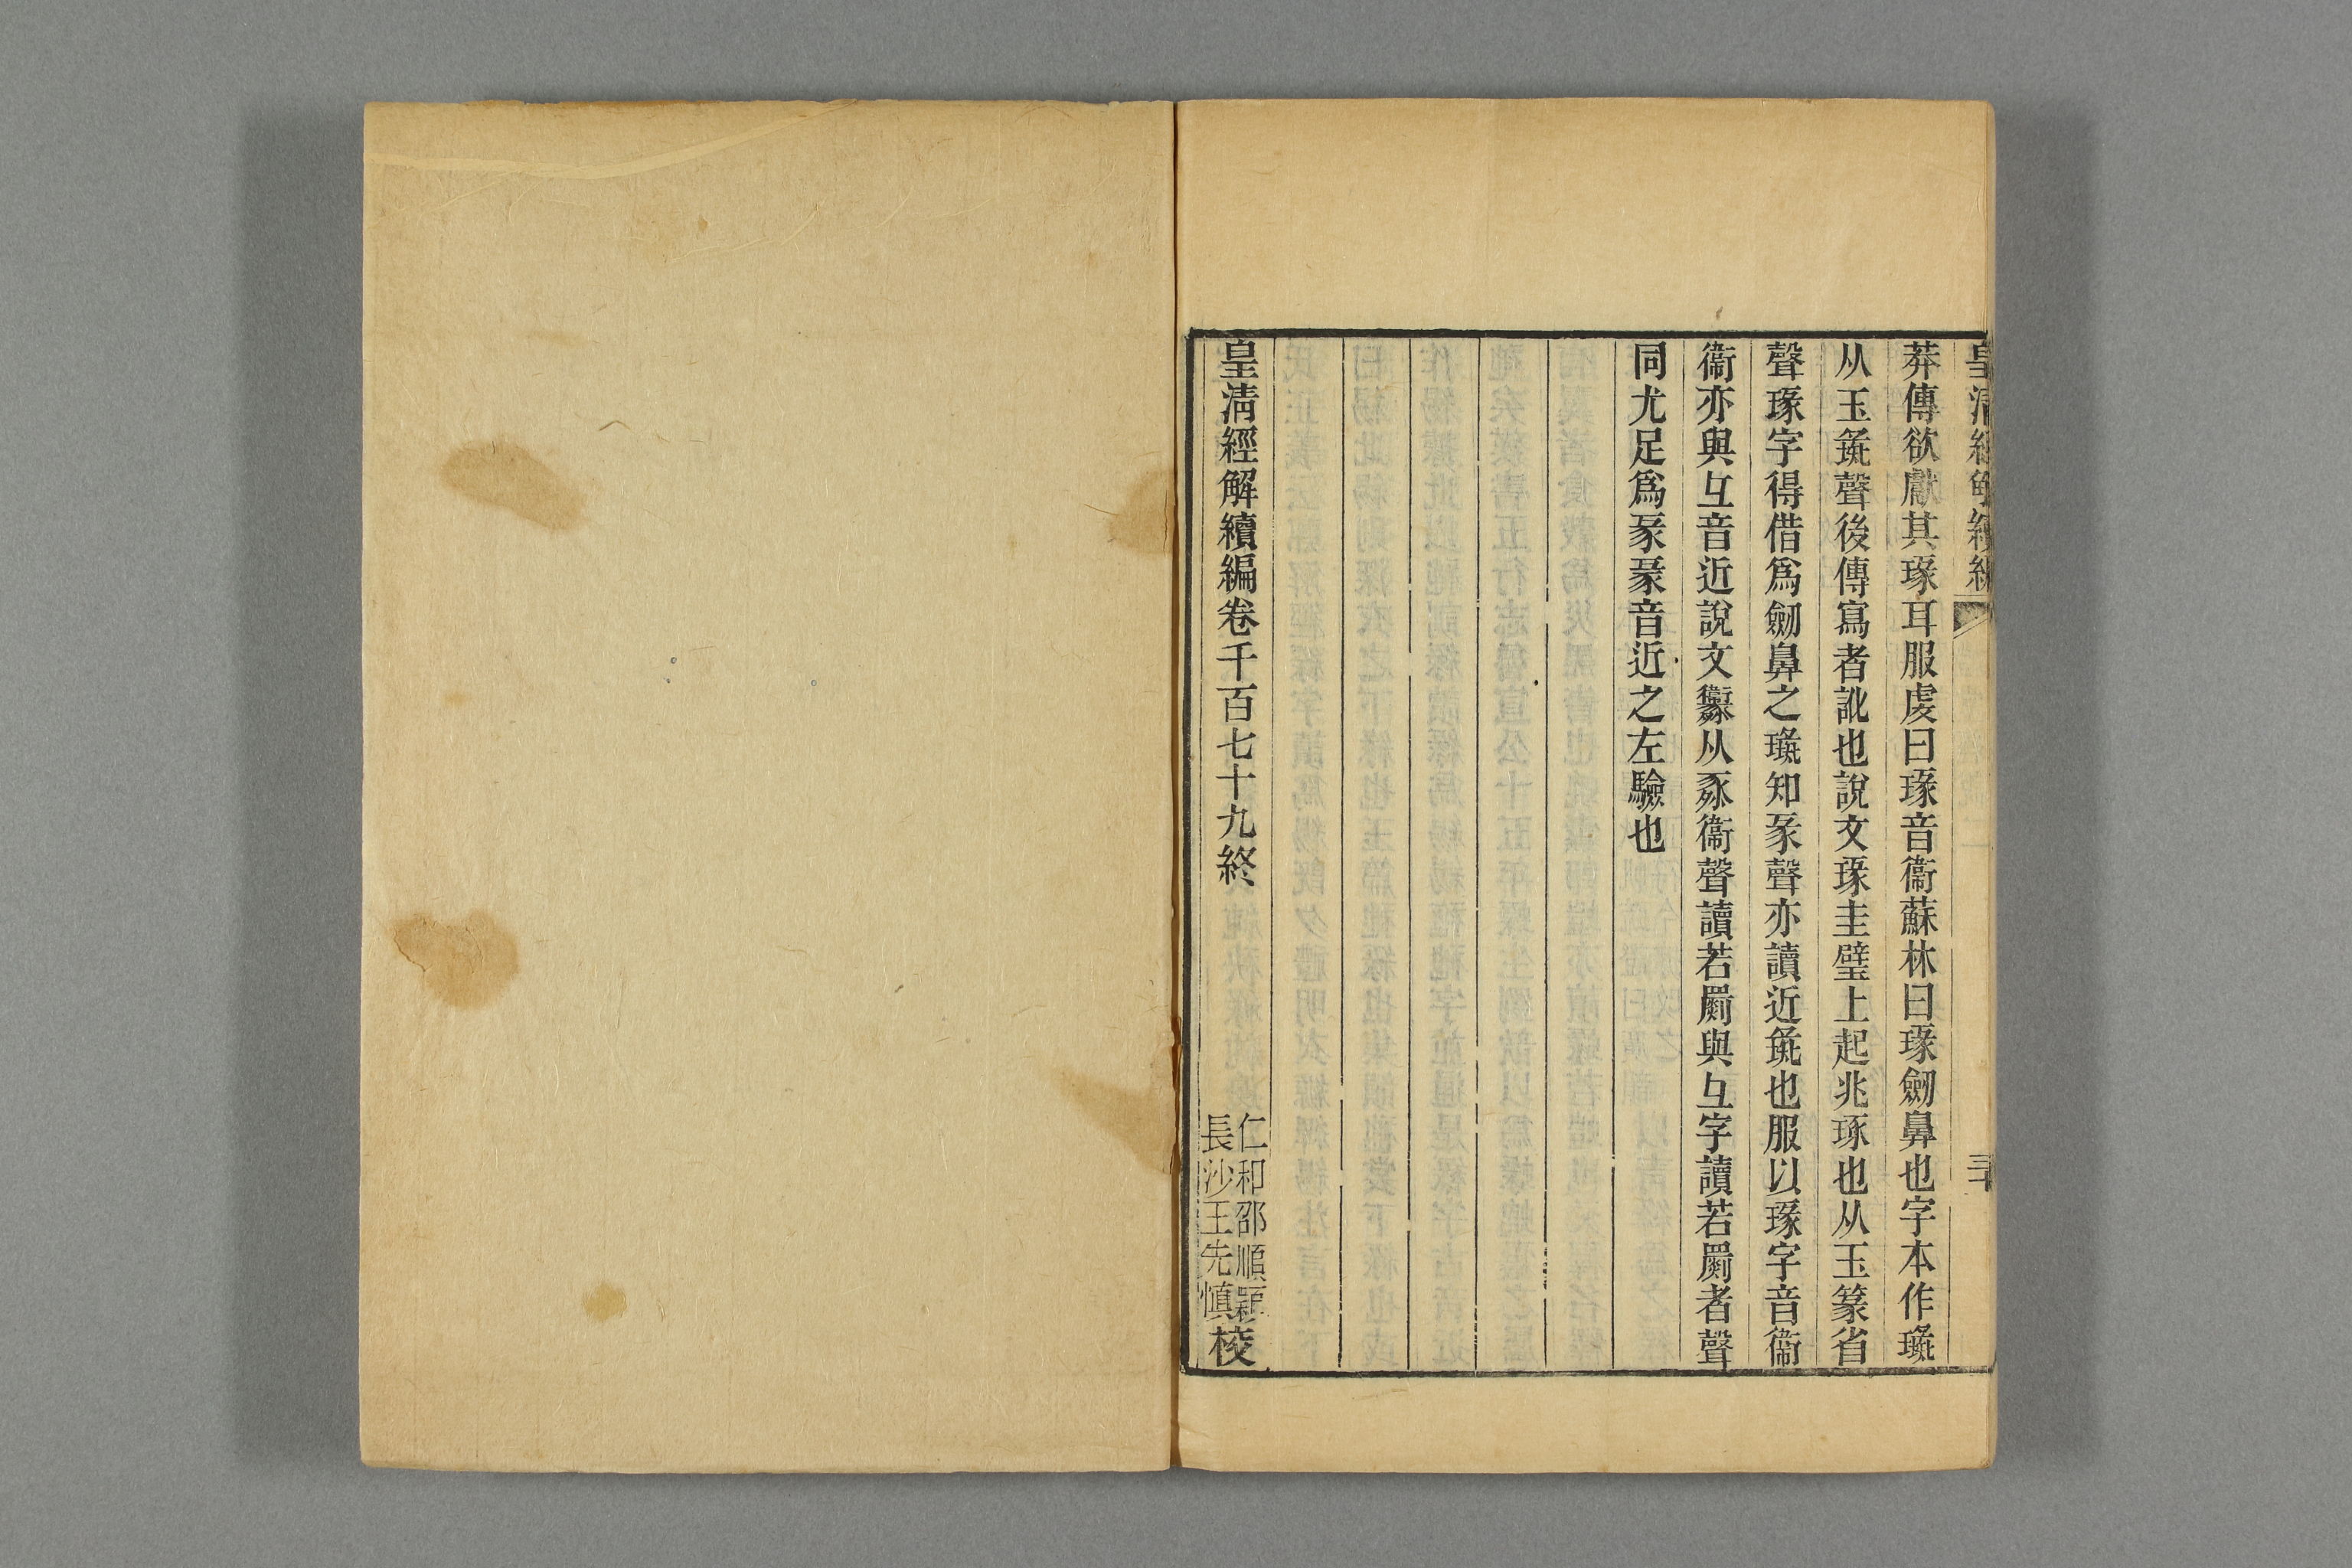 皇清經解續編
三十
莽傳欲獻其瑑耳服虔曰瑑音衞蘇林曰瑑劒鼻也字本作璏
从玉彘聲後傳寫者訛也說文瑑圭璧上起兆瑑也从玉篆省
聲瑑字得借爲劒鼻之璏知彖聲亦讀近彘也服以瑑字音衞
衞亦與彑音近說文从衞聲讀若罽與彑字讀若罽者聲
同尤足爲彖音近之左驗也
皇清經解續編卷千百七十九終
仁和邵順穎
長沙王先慎
校